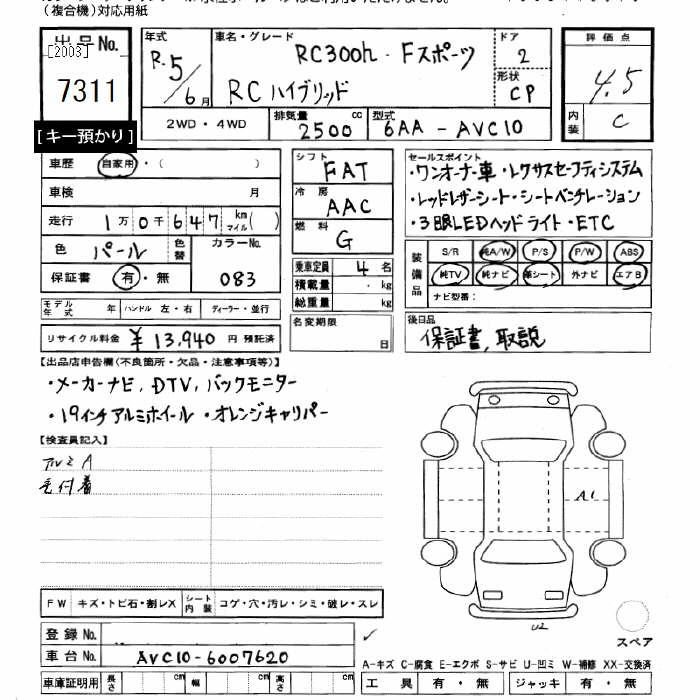 (複合機)対応用紙
出品No.
[2003]
7311
[キー預かり]
年式
R.5/6月
車名・グレード
RC300h・Fスポーツ
RCハイブリッド
ドア
2
形状
CP
評価点
4.5
内装
C
2WD・4WD
排気量
2500cc
型式
6AA-AVC10
車歴
自家用・( )
車検 月
走行 1万0千647km
マイル( )
色 パール 色替
カラーNo.
083
保証書 有・無
モデル年式 年 ハンドル 左・右 ディーラー・並行
リサイクル料金 ¥13,940円 預託済
シフト
FAT
冷房
AAC
燃料
G
乗車定員 4名
積載量 . kg
総重量 kg
名変期限
日
セールスポイント
・ワンオーナー車・レクサスセーフティシステム
・レッドレザーシート・シートベンチレーション
・3眼LEDヘッドライト・ETC
装備品
S/R 純A/W P/S P/W ABS
純TV 純ナビ 革シート 外ナビ エアB
ナビ型番:
後日品
保証書、取説
【出品店申告欄(不良箇所・欠品・注意事項等)】
・メーカーナビ, DTV, バックモニター
・19インチアルミホイール・オレンジキャリパー
【検査員記入】
アルミA
毛付着
A1
U2
スペア
FW キズ・トビ石・割レX
シート内装 コゲ・穴・汚レ・シミ・破レ・スレ
登録No.
車台No. AVC10-6007620
車庫証明用 長さ cm 幅 cm 高さ cm
A-キズ C-腐食 E-エクボ S-サビ U-凹ミ W-補修 XX-交換済
工具 有・無 ジャッキ 有・無